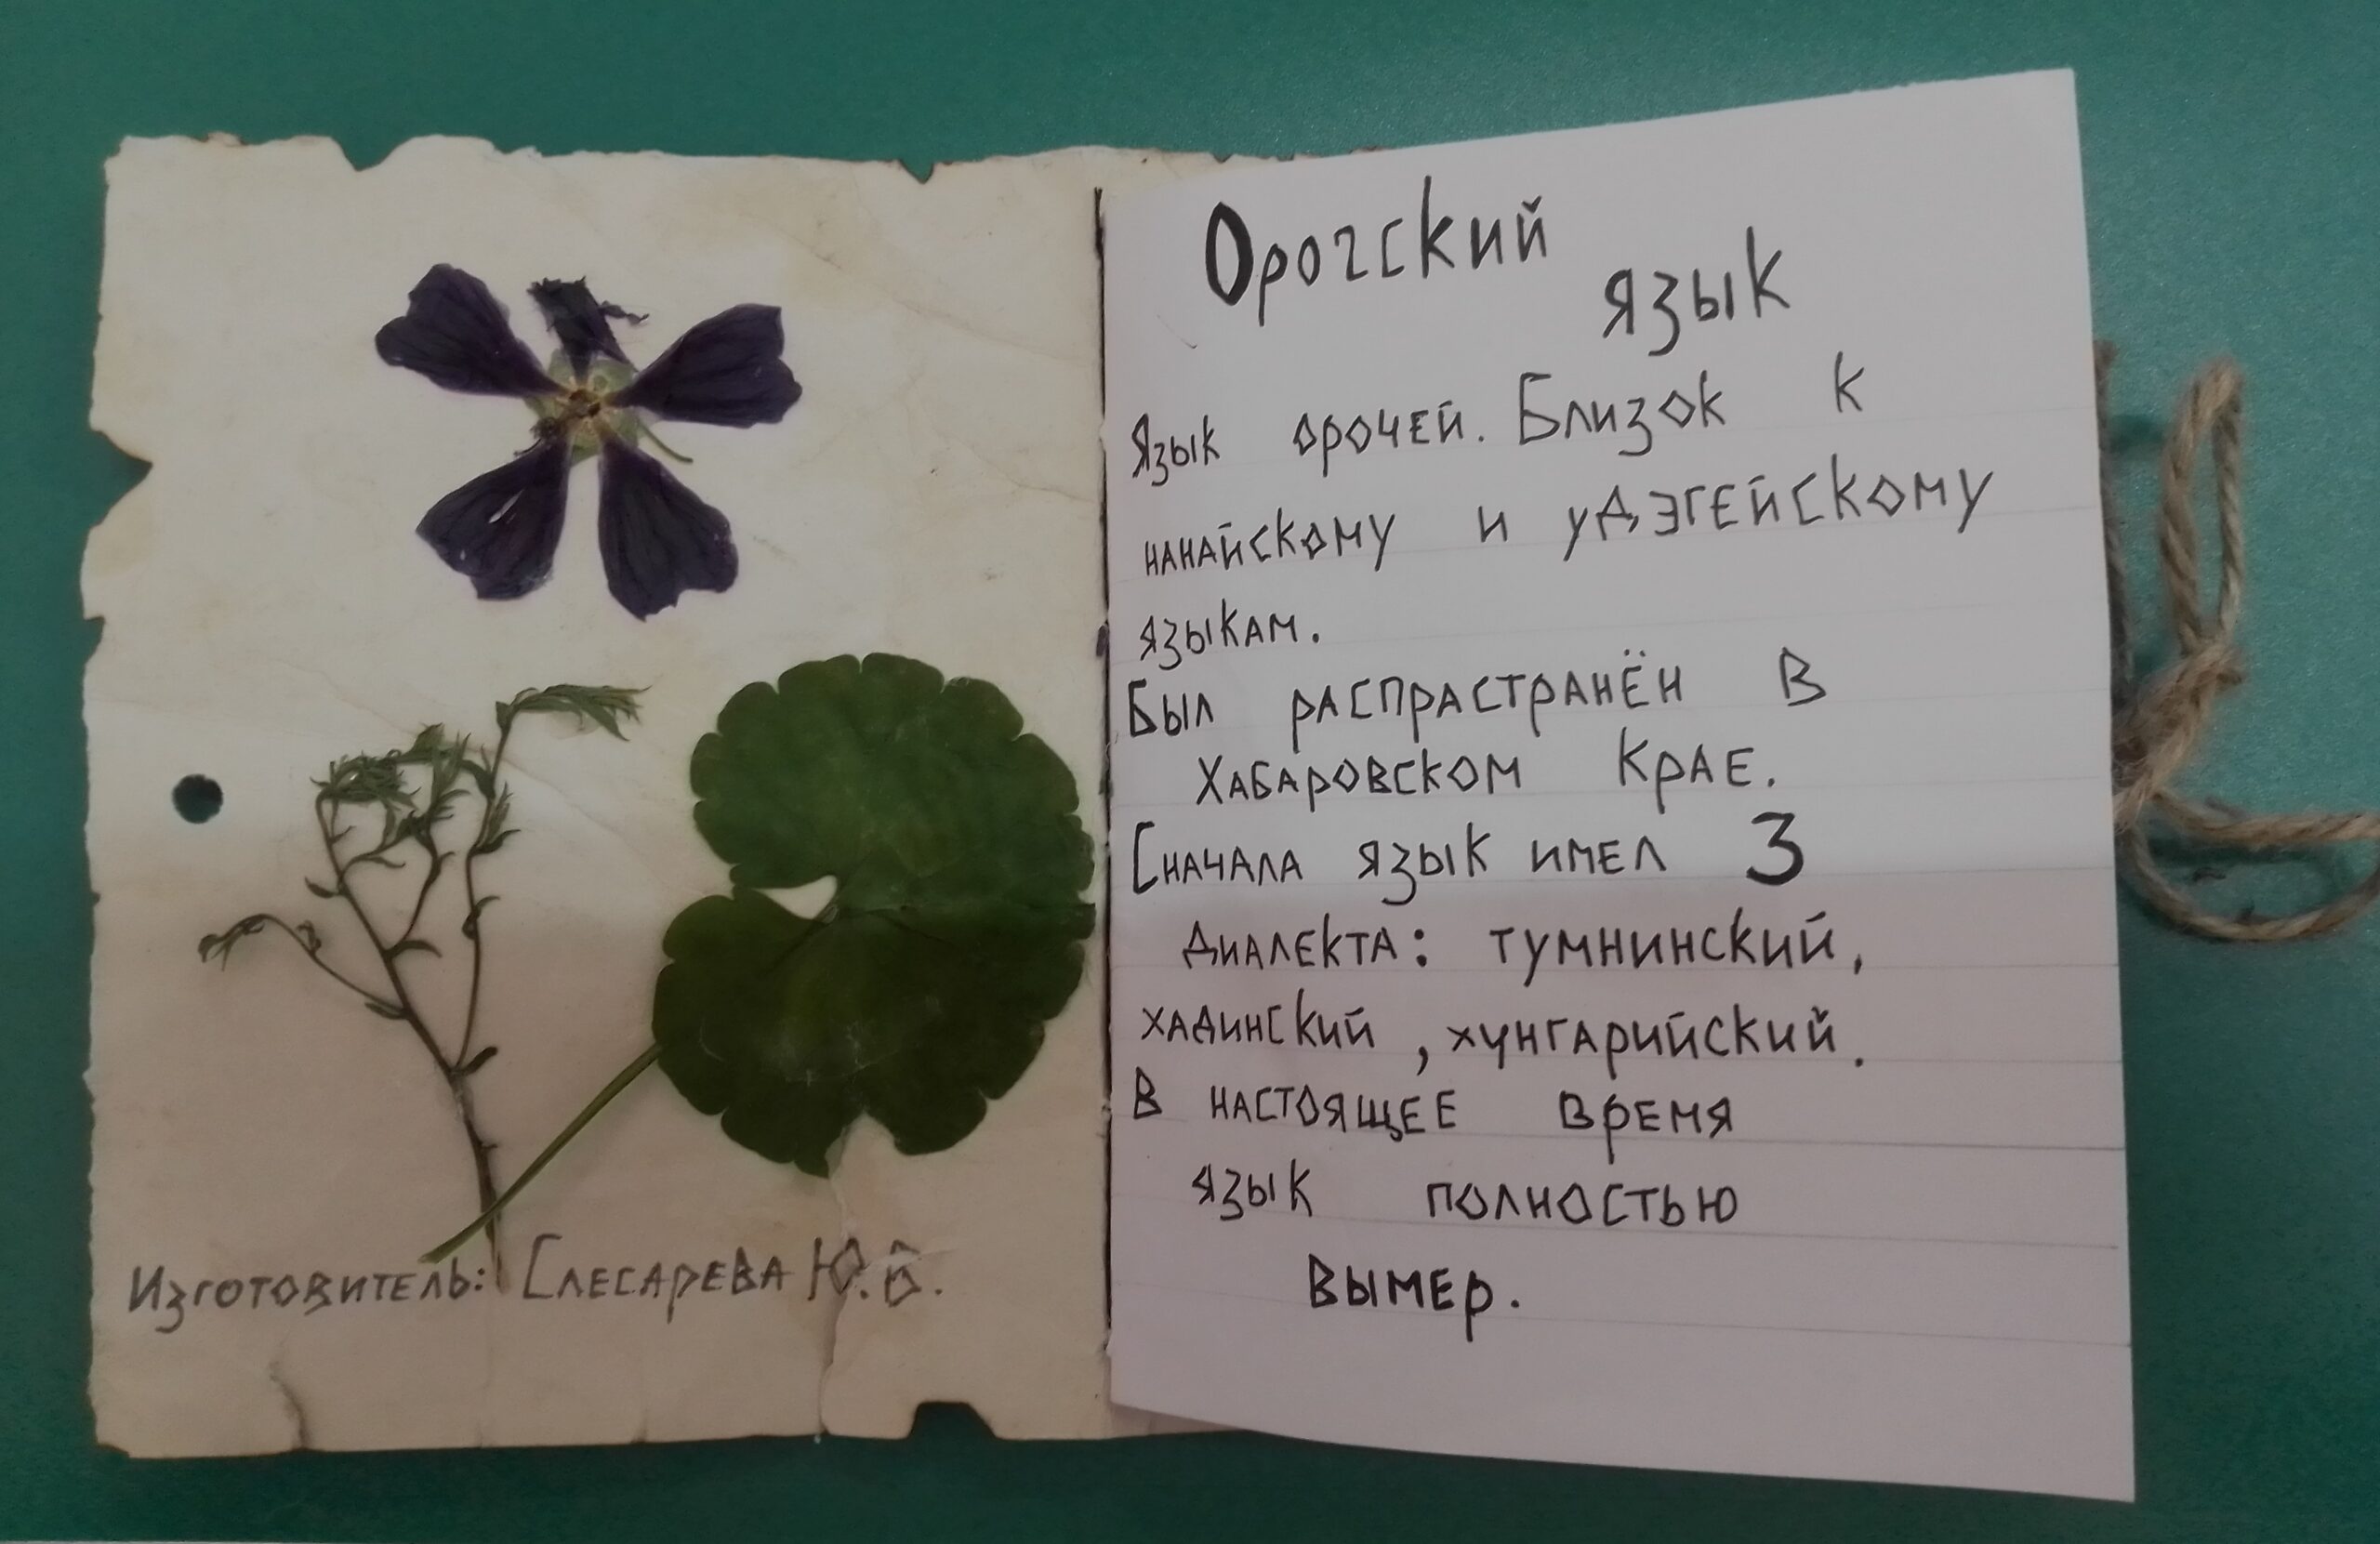 Изготовитель: Слесарева Ю.В.
Орочский
язык
Язык орочей. Близок к
нанайскому и удэгейскому
языкам.
Был распрастранён в
Хабаровском крае.
Сначала язык имел 3
диалекта: тумнинский,
хадинский, хунгарийский.
В настоящее время
язык полностью
вымер.